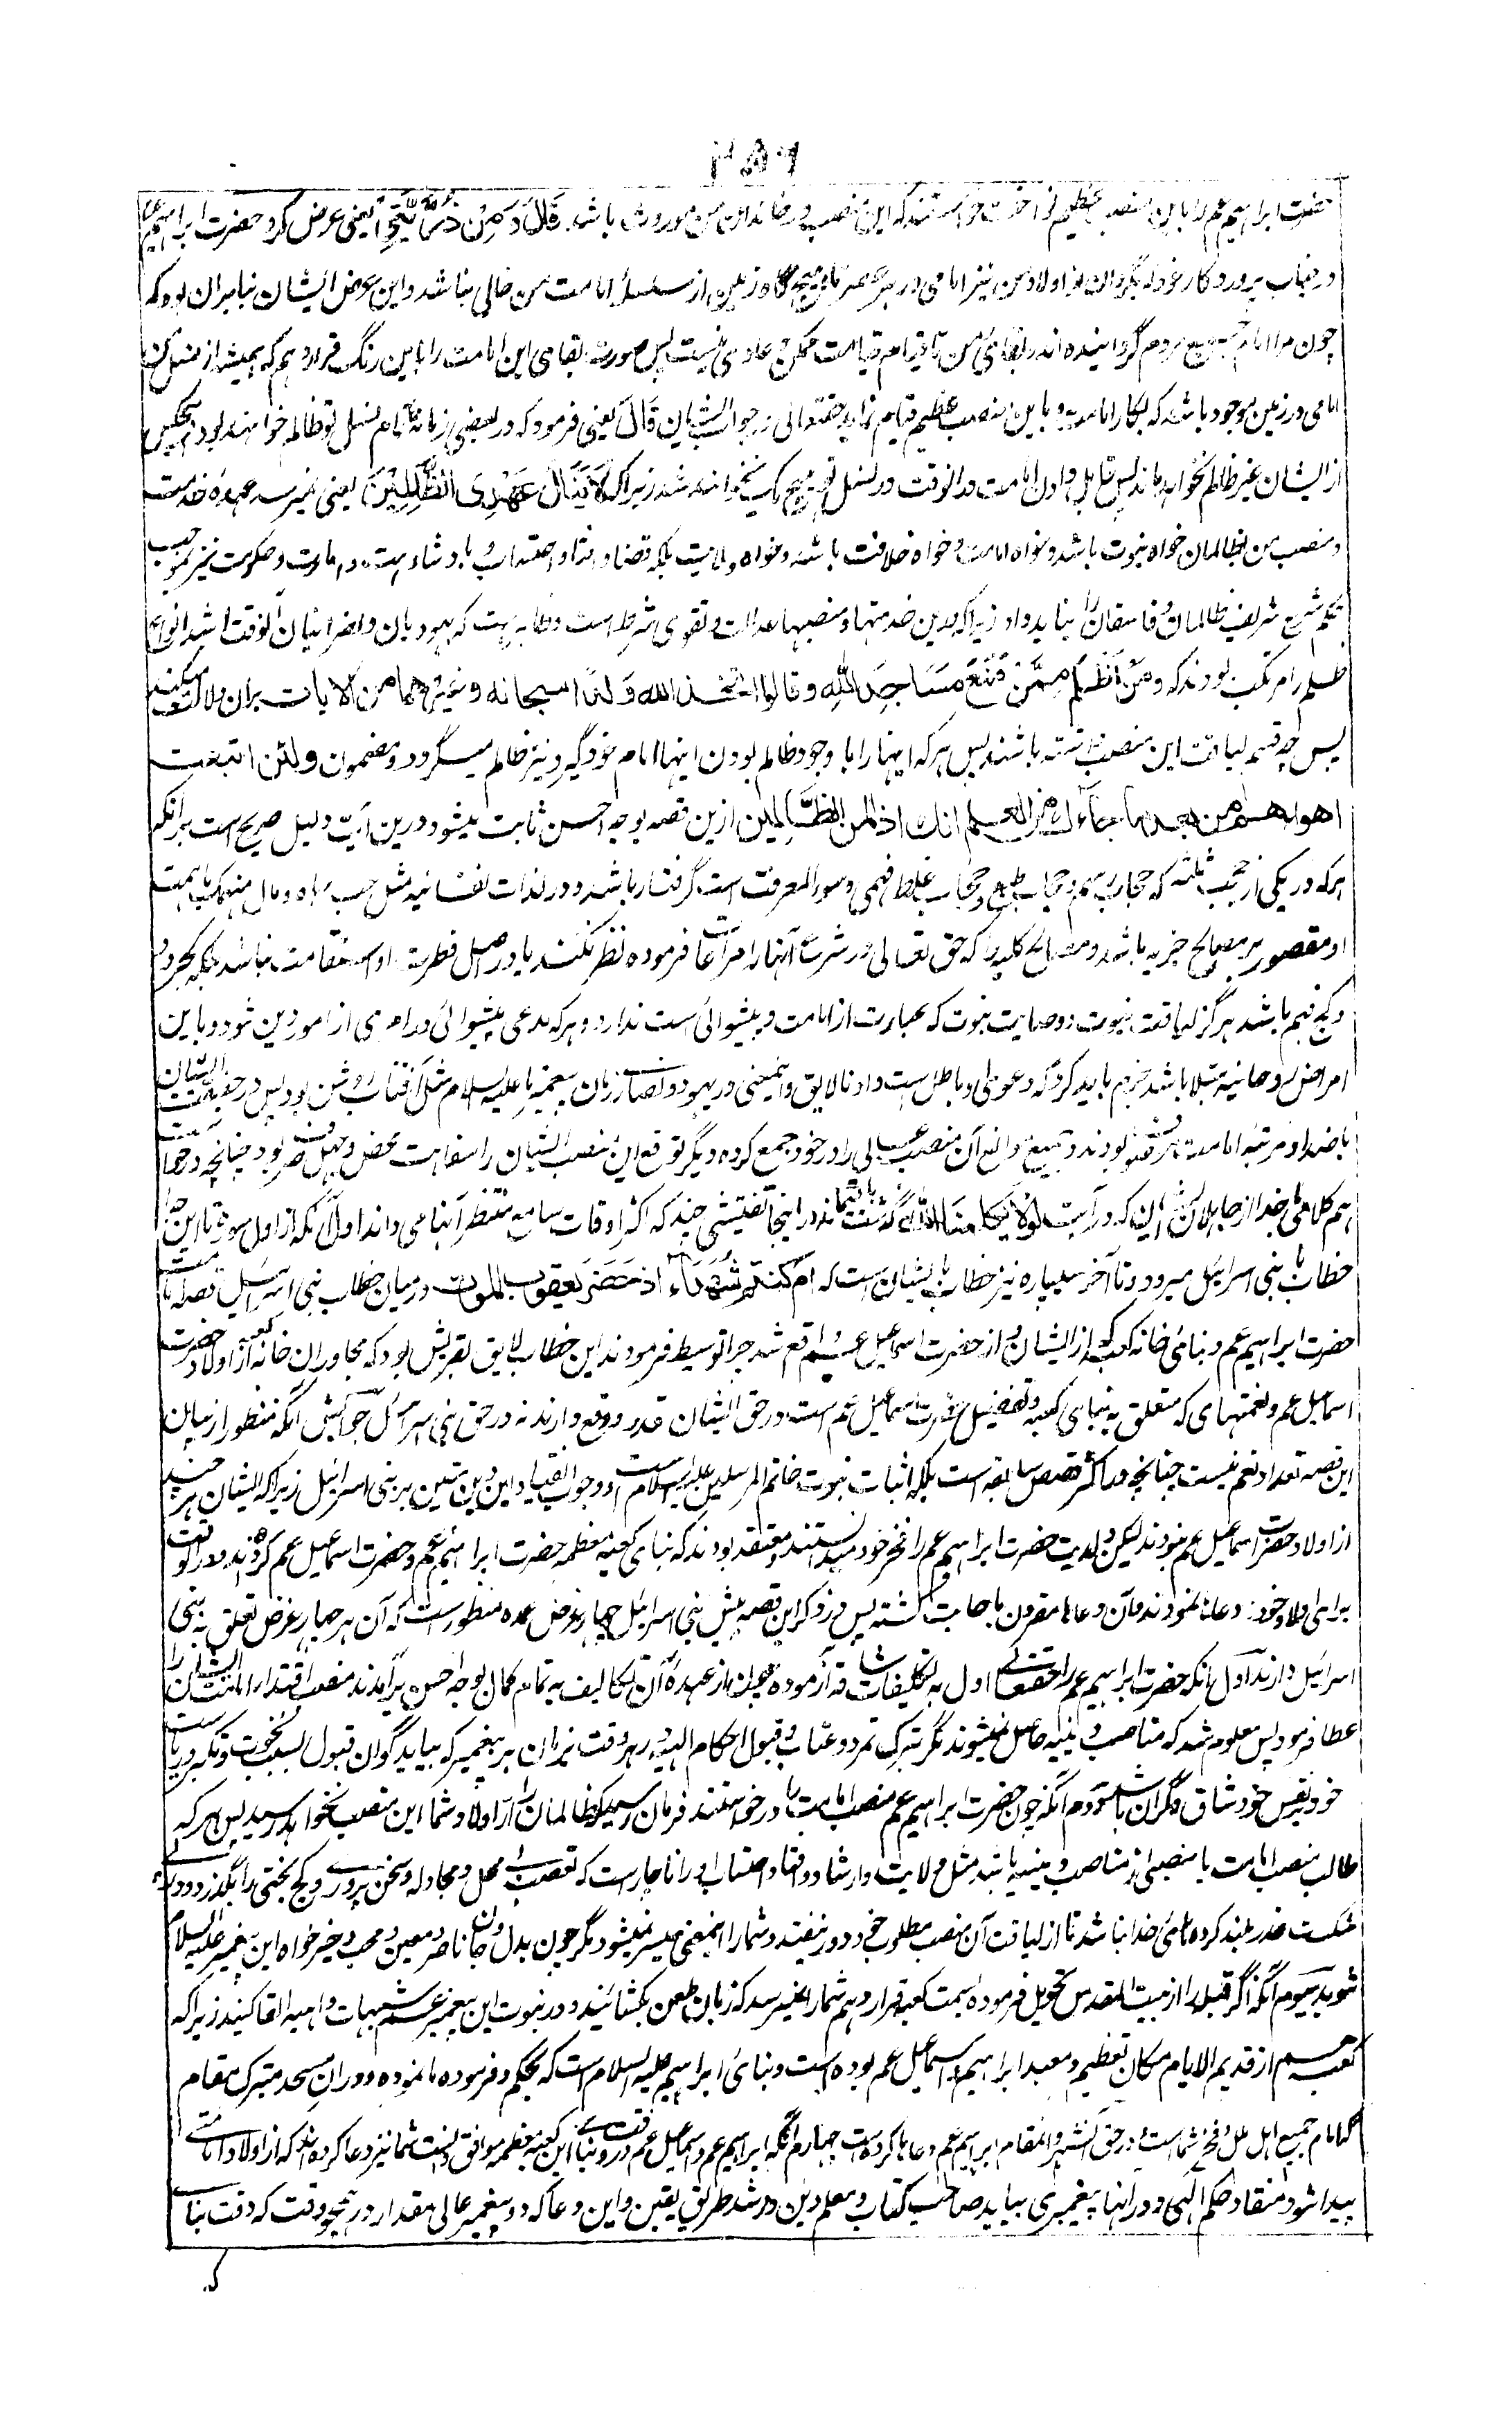 ۴۵۶
حضرت ابراهیم عم را باین منصب عظیم نواخت خواستند که این منصب در خاندان من موروث باشد قَالَ وَمِنْ ذُرِّيَّتِي یعنی عرض کرد حضرت ابراهیم
در جناب پروردگار خود که بگردان از اولاد من نیز امامی در هر عصر تا هیچگاه زمین از سلسلهٔ امامت من خالی نباشد و این عرض ایشان بنابران بود که
چون مرا امام جمیع مردم گردانیده اند و بقای من تا قیام قیامت ممکن عادی نیست پس صورت بقای این امامت را باین رنگ قرار دهم که همیشه از نسل من
امامی در زمین موجود باشد که بکار امامت و باین منصب عظیم قیام نماید حقتعالی در جواب ایشان قَالَ یعنی فرمود که در بعضی زمانها تمام نسل تو ظالم خواهند بود و هیچکس
از ایشان غیر ظالم نخواهد ماند پس قابل دادن امامت در آنوقت در نسل تو هیچ یک نخواهد شد زیرا که لَا يَنَالُ عَهْدِي الظَّالِمِينَ یعنی نمیرسد عهدهٔ خدمت
و منصب من بظالمان خواه نبوت باشد و خواه امامت و خواه خلافت باشد و خواه ولایت بلکه قضا و افتا و احتساب و بادشاهت و امارت و حکومت نیز بموجب
حکم شرع شریف ظالمان و فاسقان را نباید داد زیرا که درین خدمتها و منصبها عدالت و تقوی شرط است و ظاهر است که یهودیان و نصرانیان آنوقت اشد انواع
ظلم را مرتکب بودند که وَمَنْ أَظْلَمُ مِمَّنْ مَنَعَ مَسَاجِدَ اللهِ و قالوا اتخذ الله ولدا سبحانه و غیرهما من الآیات بران دلالت میکند
پس چه قسم لیاقت این منصب داشته باشند پس هر که اینها را با وجود ظالم بودن اینها امام خود گیرد نیز ظالم میگردد و مضمون ولئن اتبعت
اهواءهم من بعد ما جاءک من العلم انک اذا لمن الظالمین ازین قصه بوجه احسن ثابت میشود و درین آیت دلیل صریح است بر آنکه
هر که در یکی از حجب ثلثه که حجاب رسم و حجاب طبع و حجاب غلط فهمی و سوء المعرفت است گرفتار باشد و در لذات نفسانیه مثل حب جاه و مال منهمک یا همت
او مقصور بر مصالح جزئیه باشد و مصالح کلیه را که حق تعالی در شرع آنها را مراعات فرموده نظر نکند یا در اصل فطرت او استقامت نباشد بلکه کجرو
و کج فهم باشد هرگز لیاقت نبوت و وصایت نبوت که عبارت از امامت و پیشوائی است ندارد و هر که مدعی پیشوائی در امری از امور دین شود و باین
امراض روحانیه مبتلا باشد جزم باید کرد که دعوی او باطل است و او نالایق و اینمعنی در یهود و نصارای زمان پیغمبر ما علیه السلام مثل آفتاب روشن بود پس در حقیقت ایشان
با ضد او مرتبهٔ امامت بودند و جمیع موانع آن منصب عالی را در خود جمع کرده دیگر توقع این منصب ایشان را سفاهت محض و جهل صرف بود چنانچه در حماقت
هم کلامی خدا از جاهلان ایشان که در آیت لَوْلَا يُكَلِّمُنَا اللهُ گذشت باقیماند در اینجا تفتیشی چند که اکثر اوقات سامع منتظر آنها می ماند اول آنکه از اول سوره تا این جا
خطاب با بنی اسرائیل میرود و تا آخر سیپاره نیز خطاب با ایشان است که ام کنتم شهداء اذ حضر یعقوب الموت در میان خطاب بنی اسرائیل قصه امامت
حضرت ابراهیم عم و بنای خانه کعبه که از ایشان و از حضرت اسماعیل عم واقع شد چرا توسیط فرمودند این خطاب لایق بقریش بود که مجاوران خانه کعبه و از اولاد حضرت
اسماعیل عم و نعمتهای که متعلق به بنای کعبه و تفضیل حضرت اسماعیل عم است در حق ایشان قدر و وقع دارند نه در حق بنی اسرائیل جوابش آنکه منظور از بیان
این قصه تعداد نعم نیست چنانچه در اکثر قصص سابقه است بلکه اثبات نبوت خاتم المرسلین علیه السلام است و وجوب انقیاد این دین متین بر بنی اسرائیل زیرا که ایشان هر چند
از اولاد حضرت اسماعیل عم نبودند لیکن ولدیت حضرت ابراهیم عم را فخر خود میدانستند و معتقد بودند که بنای کعبه معظمه حضرت ابراهیم عم و حضرت اسماعیل عم کردند و در آنوقت
برای اولاد خود دعاها نمودند و آن دعاها مقرون باجابت گشته پس در ذکر این قصه پیش بنی اسرائیل چهار غرض عمده منظور است که آن هر چهار غرض تعلق به بنی
اسرائیل دارند اول آنکه حضرت ابراهیم عم را حقتعالی اول به تکلیفات شاقه آزموده چون از عهدهٔ آن تکالیف به تمام و کمال بوجه احسن برآمدند منصب اقتدار امامت ایشان را
عطا فرمود پس معلوم شد که مناصب دینیه حاصل نمیشوند مگر بترک تمرد و عناد و قبول احکام الهیه در هر وقت بر زبان هر پیغمبر که بیاید گو آن قبول بسبب نخوت و تکبر و ریاست
خود بر نفس خود شاق و گران باشد دوم آنکه چون حضرت ابراهیم عم منصب امامت را درخواستند فرمان رسید که ظالمان را از اولاد شما این منصب نخواهد رسید پس هر که
طالب منصب امامت یا منصبی از مناصب دینیه باشد مثل ولایت و ارشاد و افتا و احتساب او را ناچار است که تعصب و جدل و مجادله و سخن پروری و کج بحثی را بگذارد و در
شکست عذر بلند کرده های خدا نباشد تا از لیاقت آن منصب مطلوب خود دور نیفتد و شما را اینمعنی میسر نمیشود مگر چون بدل و جان ناصر و معین و محب و خیرخواه این پیغمبر علیه السلام
شوید سیوم آنکه اگر قبله را از بیت المقدس تحویل فرموده بسمت کعبه قرار دهم شما را نمیرسد که زبان طعن بکشائید و در نبوت این پیغمبر شبهات واهیه القا کنید زیرا که
کعبه هم از قدیم الایام مکان تعظیم و معبد ابراهیم و اسماعیل عم بوده است و بنای ابراهیم علیه السلام است که بحکم و فرموده ما نموده و در آن مسجد متبرک مقام
که امام جمیع اهل ملل و فخر شما است و در حق آن شهر و آن مقام ابراهیم عم دعاها کرده است چهارم آنکه ابراهیم عم و اسماعیل عم در وقت بنای این کعبه معظمه موافق دانست شما نیز دعا کرده اند که از اولاد ما امتی
پیدا شود منقاد حکم الهی و در آنها پیغمبری بیاید صاحب کتاب و معلم دین و مرشد طریق یقین و این دعا که دو پیغمبر عالی مقدار در همچو وقت که وقت بنای